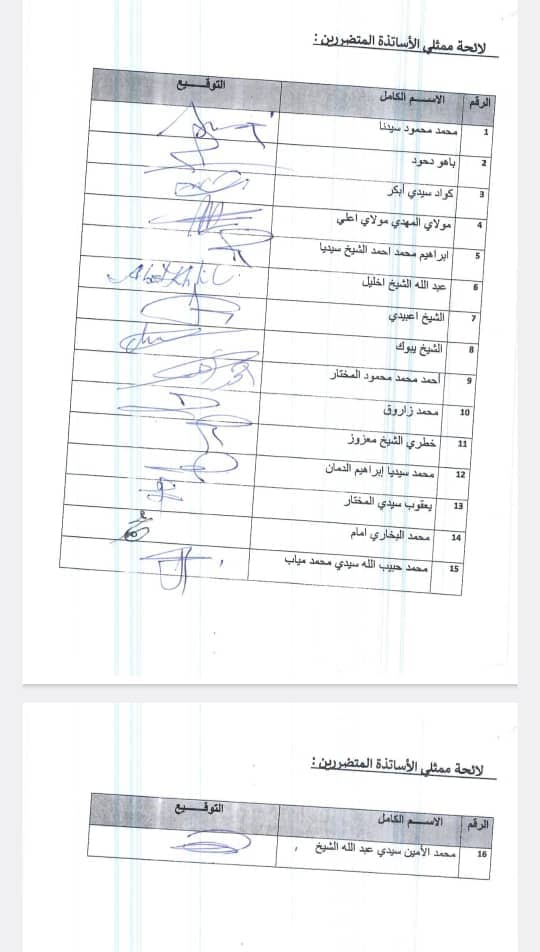 لائحة ممثلي الأساتذة المتضررين :
الرقم الاسم الكامل التوقيع
1 محمد محمود سيدنا
2 باهو دحود
3 كواد سيدي أبكر
4 مولاي المهدي مولاي اعلي
5 ابراهيم محمد احمد الشيخ سيديا
6 عبد الله الشيخ اخليل
7 الشيخ اعبيدي
8 الشيخ ببوك
9 أحمد محمد محمود المختار
10 محمد زاروق
11 خطري الشيخ معزوز
12 محمد سيديا إبراهيم الدمان
13 يعقوب سيدي المختار
14 محمد البخاري امام
15 محمد حبيب الله سيدي محمد مياب
لائحة ممثلي الأساتذة المتضررين :
الرقم الاسم الكامل التوقيع
16 محمد الأمين سيدي عبد الله الشيخ